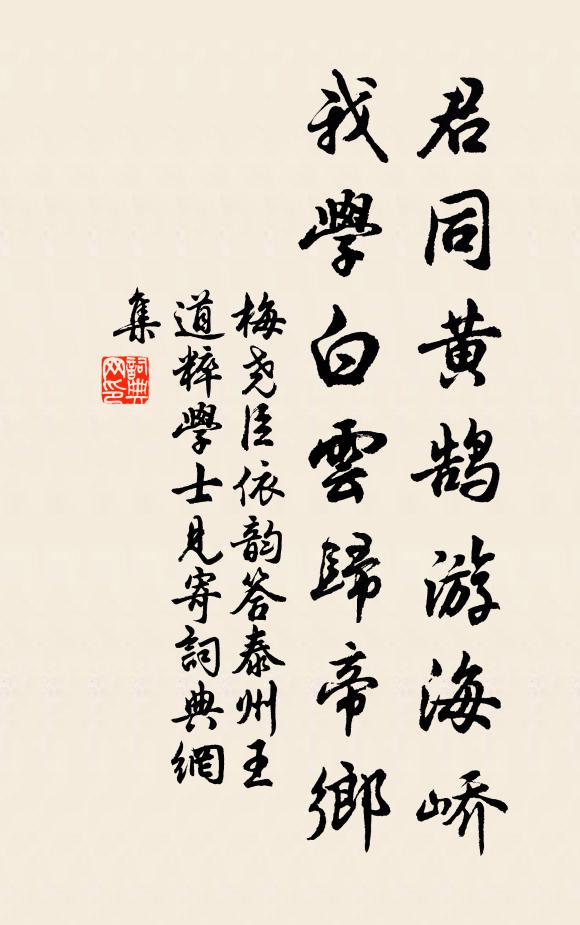 君同黄鹄游海峤
我學白雲歸帝鄉
梅尧臣依韵答泰州王
道粹學士見寄詞典網
集
詞典
网印